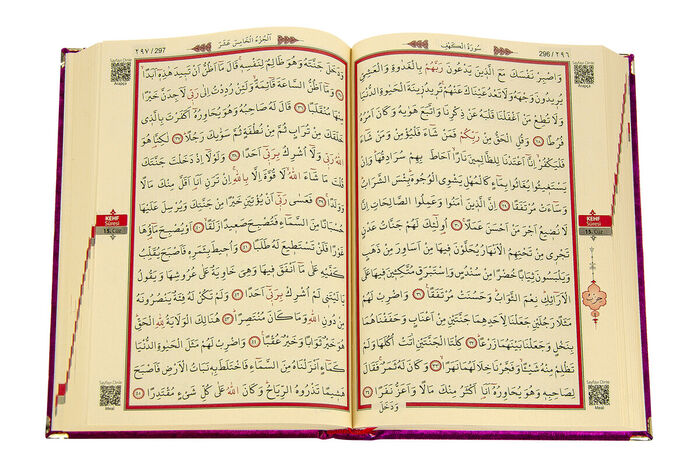 سُورَةُ الْكَهْفِ
296 / ٢٩٦
وَاصْبِرْ نَفْسَكَ مَعَ الَّذ۪ينَ يَدْعُونَ رَبَّهُمْ بِالْغَدٰوةِ وَالْعَشِيِّ
يُر۪يدُونَ وَجْهَهُ وَلَا تَعْدُ عَيْنَاكَ عَنْهُمْ تُر۪يدُ ز۪ينَةَ الْحَيٰوةِ الدُّنْيَا
وَلَا تُطِعْ مَنْ اَغْفَلْنَا قَلْبَهُ عَنْ ذِكْرِنَا وَاتَّبَعَ هَوٰيهُ وَكَانَ اَمْرُهُ
فُرُطًا ﴿٢٨﴾ وَقُلِ الْحَقُّ مِنْ رَبِّكُمْ فَمَنْ شَٓاءَ فَلْيُؤْمِنْ وَمَنْ شَٓاءَ
فَلْيَكْفُرْ اِنَّٓا اَعْتَدْنَا لِلظَّالِم۪ينَ نَارًا اَحَاطَ بِهِمْ سُرَادِقُهَا وَاِنْ
يَسْتَغ۪يثُوا يُغَاثُوا بِمَٓاءٍ كَالْمُهْلِ يَشْوِي الْوُجُوهَ بِئْسَ الشَّرَابُ
وَسَٓاءَتْ مُرْتَفَقًا ﴿٢٩﴾ اِنَّ الَّذ۪ينَ اٰمَنُوا وَعَمِلُوا الصَّالِحَاتِ اِنَّا
لَا نُض۪يعُ اَجْرَ مَنْ اَحْسَنَ عَمَلًا ﴿٣٠﴾ اُو۬لٰٓئِكَ لَهُمْ جَنَّاتُ عَدْنٍ
تَجْر۪ي مِنْ تَحْتِهِمُ الْاَنْهَارُ يُحَلَّوْنَ ف۪يهَا مِنْ اَسَاوِرَ مِنْ ذَهَبٍ
وَيَلْبَسُونَ ثِيَابًا خُضْرًا مِنْ سُنْدُسٍ وَاِسْتَبْرَقٍ مُتَّكِـ۪ٔينَ ف۪يهَا عَلَى
الْاَرَٓائِكِ نِعْمَ الثَّوَابُ وَحَسُنَتْ مُرْتَفَقًا ﴿٣١﴾ وَاضْرِبْ لَهُمْ
مَثَلًا رَجُلَيْنِ جَعَلْنَا لِاَحَدِهِمَا جَنَّتَيْنِ مِنْ اَعْنَابٍ وَحَفَفْنَاهُمَا
بِنَخْلٍ وَجَعَلْنَا بَيْنَهُمَا زَرْعًا ﴿٣٢﴾ كِلْتَا الْجَنَّتَيْنِ اٰتَتْ اُكُلَهَا وَلَمْ
تَظْلِمْ مِنْهُ شَيْـًٔا وَفَجَّرْنَا خِلَالَهُمَا نَهَرًا ﴿٣٣﴾ وَكَانَ لَهُ ثَمَرٌ فَقَالَ
لِصَاحِبِه۪ وَهُوَ يُحَاوِرُهُٓ اَنَا۬ اَكْثَرُ مِنْكَ مَالًا وَاَعَزُّ نَفَرًا ﴿٣٤﴾
وَدَخَلَ
Sayfayı Dinle
Arapça
KEHF
Sûresi
15. Cüz
حزب
Sayfayı Dinle
Meal
اَلْجُزْءُ الْخَامِسُ عَشَرَ
٢٩٧ / 297
وَدَخَلَ جَنَّتَهُ وَهُوَ ظَالِمٌ لِنَفْسِه۪ قَالَ مَٓا اَظُنُّ اَنْ تَب۪يدَ هٰذِه۪ٓ اَبَدًا
﴿٣٥﴾ وَمَٓا اَظُنُّ السَّاعَةَ قَٓائِمَةً وَلَئِنْ رُدِدْتُ اِلٰى رَبّ۪ي لَاَجِدَنَّ خَيْرًا
مِنْهَا مُنْقَلَبًا ﴿٣٦﴾ قَالَ لَهُ صَاحِبُهُ وَهُوَ يُحَاوِرُهُٓ اَكَفَرْتَ بِالَّذ۪ي
خَلَقَكَ مِنْ تُرَابٍ ثُمَّ مِنْ نُطْفَةٍ ثُمَّ سَوّٰيكَ رَجُلًا ﴿٣٧﴾ لٰكِنَّا۬ هُوَ
اللّٰهُ رَبّ۪ي وَلَٓا اُشْرِكُ بِرَبّ۪ٓي اَحَدًا ﴿٣٨﴾ وَلَوْلَٓا اِذْ دَخَلْتَ جَنَّتَكَ
قُلْتَ مَا شَٓاءَ اللّٰهُ لَا قُوَّةَ اِلَّا بِاللّٰهِ اِنْ تَرَنِ اَنَا۬ اَقَلَّ مِنْكَ مَالًا
وَوَلَدًا ﴿٣٩﴾ فَعَسٰى رَبّ۪ٓي اَنْ يُؤْتِيَنِ خَيْرًا مِنْ جَنَّتِكَ وَيُرْسِلَ عَلَيْهَا
حُسْبَانًا مِنَ السَّمَٓاءِ فَتُصْبِحَ صَع۪يدًا زَلَقًا ﴿٤٠﴾ اَوْ يُصْبِحَ مَٓاؤُ۬هَا
غَوْرًا فَلَنْ تَسْتَط۪يعَ لَهُ طَلَبًا ﴿٤١﴾ وَاُح۪يطَ بِثَمَرِه۪ فَاَصْبَحَ يُقَلِّبُ
كَفَّيْهِ عَلٰى مَٓا اَنْفَقَ ف۪يهَا وَهِيَ خَاوِيَةٌ عَلٰى عُرُوشِهَا وَيَقُولُ
يَا لَيْتَن۪ي لَمْ اُشْرِكْ بِرَبّ۪ٓي اَحَدًا ﴿٤٢﴾ وَلَمْ تَكُنْ لَهُ فِئَةٌ يَنْصُرُونَهُ
مِنْ دُونِ اللّٰهِ وَمَا كَانَ مُنْتَصِرًا ﴿٤٣﴾ هُنَالِكَ الْوَلَايَةُ لِلّٰهِ الْحَقِّ
هُوَ خَيْرٌ ثَوَابًا وَخَيْرٌ عُقْبًا ﴿٤٤﴾ وَاضْرِبْ لَهُمْ مَثَلَ الْحَيٰوةِ الدُّنْيَا
كَمَٓاءٍ اَنْزَلْنَاهُ مِنَ السَّمَٓاءِ فَاخْتَلَطَ بِه۪ نَبَاتُ الْاَرْضِ فَاَصْبَحَ
هَش۪يمًا تَذْرُوهُ الرِّيَاحُ وَكَانَ اللّٰهُ عَلٰى كُلِّ شَيْءٍ مُقْتَدِرًا ﴿٤٥﴾
Sayfayı Dinle
Arapça
KEHF
Sûresi
15. Cüz
Sayfayı Dinle
Meal